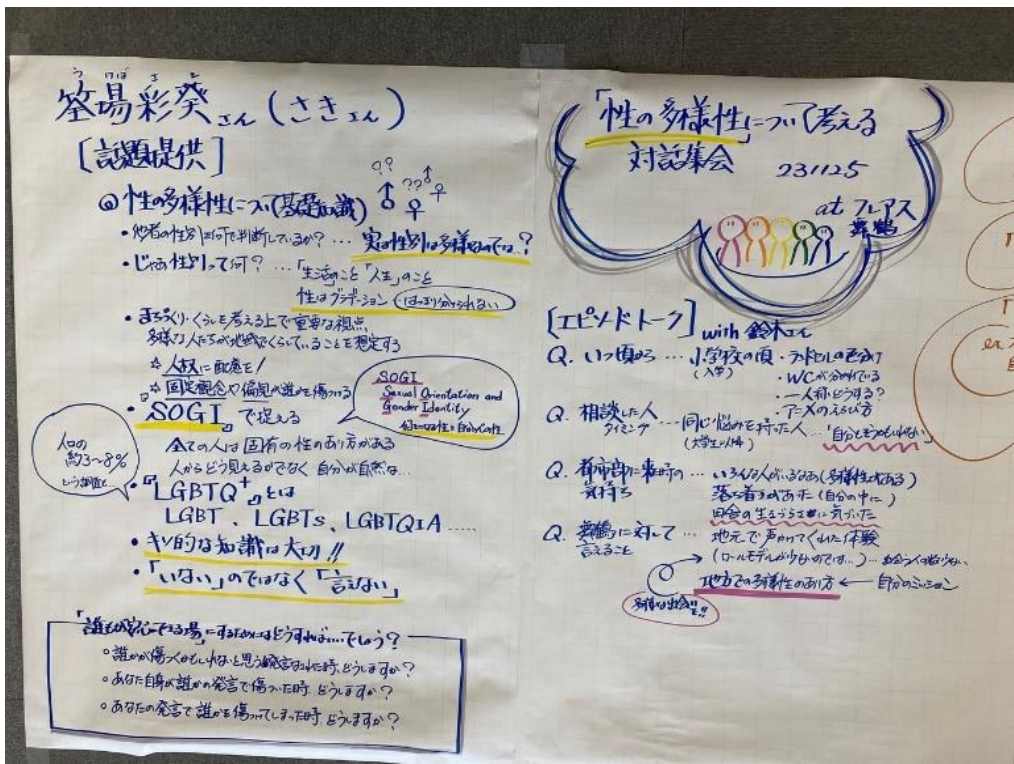 うけば さき
筌場彩葵さん(さきさん)
[話題提供]
◎性の多様性について(基礎知識)
?? ??
・他者の性別は何で判断しているか? … 実は性別は多様なのでは?
・じゃあ性別って何? … 「生活」のこと 「人生」のこと
性はグラデーション はっきり分けられない
・まちづくり・くらしを考える上で重要な視点
多様な人たちが地域でくらしていることを想定する
☆ 人権に配慮を!
☆ 固定観念や偏見が誰かを傷つける
・『SOGI』で捉える
SOGI
Sexual Orientation and
Gender Identity
好きになる性と自分の心の性
全ての人は固有の性のあり方がある
人からどう見えるかでなく 自分が自然な…
人口の
約3~8%
という数値も…
・『LGBTQ+』とは
LGBT、LGBTs、LGBTQIA……
・キソ的な知識は大切!!
・「いない」のではなく「言えない」
「誰もが安心できる場」にするためにはどうすれば…でしょう?
○誰かが傷つくかもしれないと思う発言された時、どうしますか?
○あなた自身が誰かの発言で傷ついた時、どうしますか?
○あなたの発言で誰かを傷つけてしまった時、どうしますか?
「性の多様性」について考える
対話集会 231125
at フレアス
舞鶴
[エピソードトーク] with 鈴木さん
Q. いつ頃から … 小学校の頃・ランドセルの色分け
(入学)
・WCが分かれている
・一人称どうする?
・アニメのえらび方
Q. 相談した人 … 同じ悩みを持った人…「自分もそうかもしれない」
タイミング (大学生の時)
Q. 都市部に来た時の … いろんな人がいるなあ(多様性がある)
気持ち 落ち着きがあった(自分の中に)
田舎の生きづらさに気づいた
Q. 舞鶴に対して … 地元で声かけてくれた体験
言えること (ロールモデルが少ないのでは…)…
地方での多様性のあり方 ← 自分のミッション
多様な出会いを!!
ex.